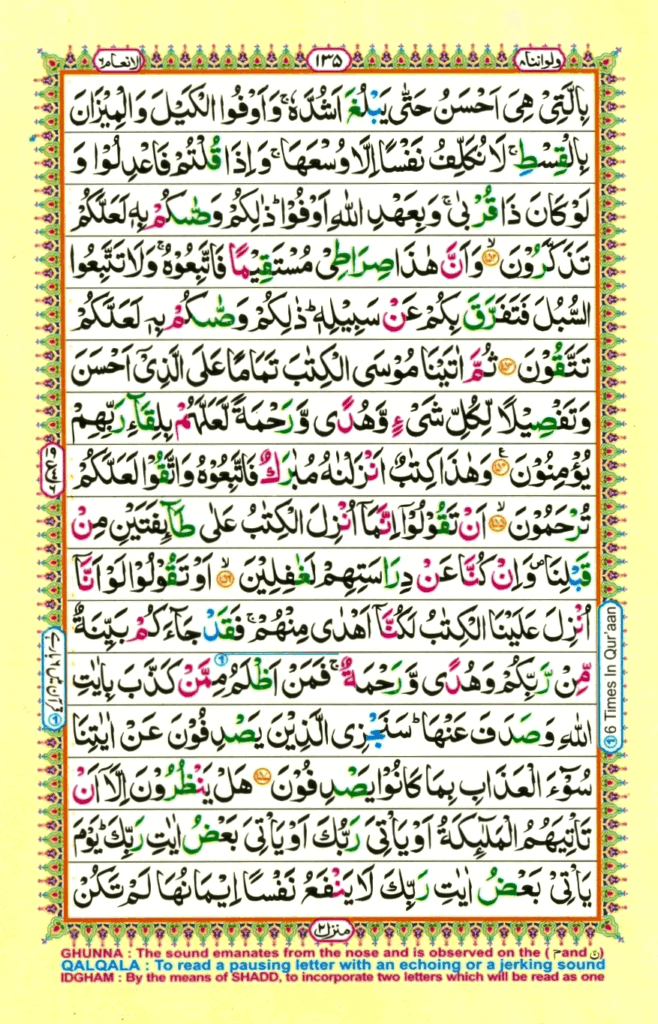 ولواننا ٨
١٣٥
الانعام ٦
بِالَّتِىْ هِىَ اَحْسَنُ حَتّٰى يَبْلُغَ اَشُدَّهٗ‌ ۚ وَاَوْفُوا الْكَيْلَ وَالْمِيْزَانَ
بِالْقِسْطِ‌ ۚ لَا نُكَلِّفُ نَفْسًا اِلَّا وُسْعَهَا‌ ۚ وَاِذَا قُلْتُمْ فَاعْدِلُوْا وَ
لَوْ كَانَ ذَا قُرْبٰى‌ ۚ وَبِعَهْدِ اللّٰهِ اَوْفُوْا‌ ؕ ذٰلِكُمْ وَصّٰٮكُمْ بِهٖ لَعَلَّكُمْ
تَذَكَّرُوْنَ ۙ‏ ﴿۱۵۲﴾ وَاَنَّ هٰذَا صِرَاطِىْ مُسْتَقِيْمًا فَاتَّبِعُوْهُ‌ ۚ وَلَا تَتَّبِعُوا
السُّبُلَ فَتَفَرَّقَ بِكُمْ عَنْ سَبِيْلِهٖ‌ ؕ ذٰلِكُمْ وَصّٰٮكُمْ بِهٖ لَعَلَّكُمْ
تَتَّقُوْنَ ﴿۱۵۳﴾ ثُمَّ اٰتَيْنَا مُوْسَى الْكِتٰبَ تَمَامًا عَلَى الَّذِىْۤ اَحْسَنَ
وَتَفْصِيْلًا لِّكُلِّ شَىْءٍ وَّهُدًى وَّرَحْمَةً لَّعَلَّهُمْ بِلِقَآءِ رَبِّهِمْ
يُؤْمِنُوْنَ ﴿۱۵۴﴾ وَهٰذَا كِتٰبٌ اَنْزَلْنٰهُ مُبٰرَكٌ فَاتَّبِعُوْهُ وَاتَّقُوْا لَعَلَّكُمْ
تُرْحَمُوْنَ ۙ‏ ﴿۱۵۵﴾ اَنْ تَقُوْلُوْۤا اِنَّمَاۤ اُنْزِلَ الْكِتٰبُ عَلٰى طَآٮِٕفَتَيْنِ مِنْ
قَبْلِنَا وَاِنْ كُنَّا عَنْ دِرَاسَتِهِمْ لَغٰفِلِيْنَ ۙ‏ ﴿۱۵۶﴾ اَوْ تَقُوْلُوْا لَوْ اَنَّاۤ
اُنْزِلَ عَلَيْنَا الْكِتٰبُ لَكُنَّاۤ اَهْدٰى مِنْهُمْ‌ ۚ فَقَدْ جَآءَكُمْ بَيِّنَةٌ
مِّنْ رَّبِّكُمْ وَهُدًى وَّرَحْمَةٌ‌ ۚ فَمَنْ اَظْلَمُ مِمَّنْ كَذَّبَ بِاٰيٰتِ
اللّٰهِ وَصَدَفَ عَنْهَا‌ ؕ سَنَجْزِى الَّذِيْنَ يَصْدِفُوْنَ عَنْ اٰيٰتِنَا
سُوْٓءَ الْعَذَابِ بِمَا كَانُوْا يَصْدِفُوْنَ ﴿۱۵۷﴾ هَلْ يَنْظُرُوْنَ اِلَّاۤ اَنْ
تَاْتِيَهُمُ الْمَلٰۤٮِٕكَةُ اَوْ يَاْتِىَ رَبُّكَ اَوْ يَاْتِىَ بَعْضُ اٰيٰتِ رَبِّكَ‌ ؕ يَوْمَ
يَاْتِىْ بَعْضُ اٰيٰتِ رَبِّكَ لَا يَنْفَعُ نَفْسًا اِيْمَانُهَا لَمْ تَكُنْ
6 Times In Qur'aan
منزل ٢
GHUNNA : The sound emanates from the nose and is observed on the ( م and ن )
QALQALA : To read a pausing letter with an echoing or a jerking sound
IDGHAM : By the means of SHADD, to incorporate two letters which will be read as one